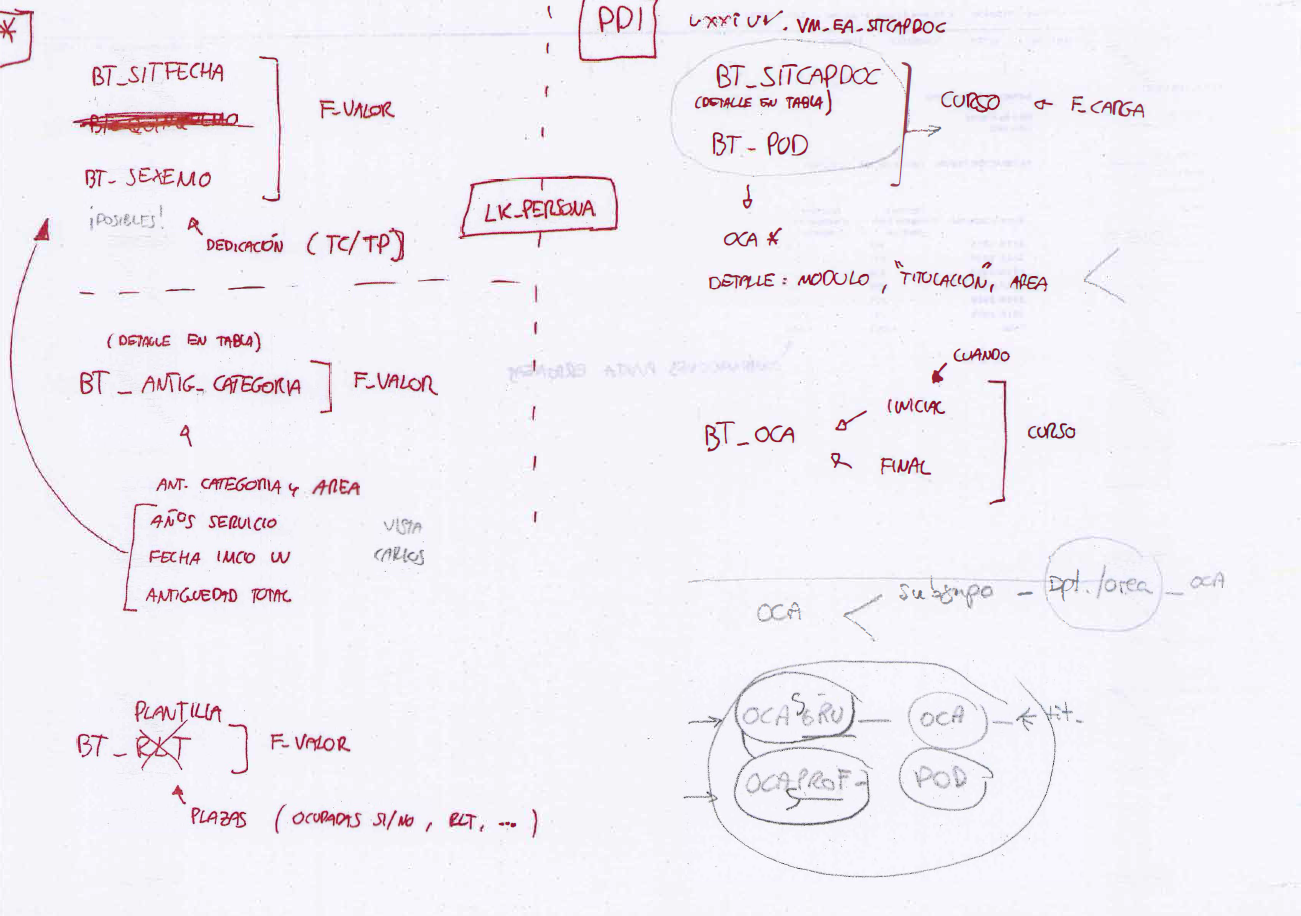 *
BT_SITFECHA
F_VALOR
BT_SEXENIO
¡POSIBLES!
DEDICACIÓN (TC/TP)
LK_PERSONA
(DETALLE EN TABLA)
BT_ANTIG_CATEGORIA
F_VALOR
ANT. CATEGORIA y AREA
AÑOS SERVICIO
FECHA INICIO UV
ANTIGUEDAD TOTAL
VISTA
CARLOS
PLANTILLA
BT_RLT
F_VALOR
PLAZAS (OCUPADAS SI/NO, RLT, ...)
PDI
UXXIUV. VM_EA_SITCAPDOC
BT_SITCAPDOC
(DETALLE EN TABLA)
BT_POD
CURSO ← F_CARGA
OCA *
DETALLE: MODULO, "TITULACION", AREA
CUANDO
INICIAL
BT_OCA
FINAL
CURSO
OCA < subgrupo - Dpt./area - OCA
OCASGRU - OCA - ← tit.
OCAPROF - POD